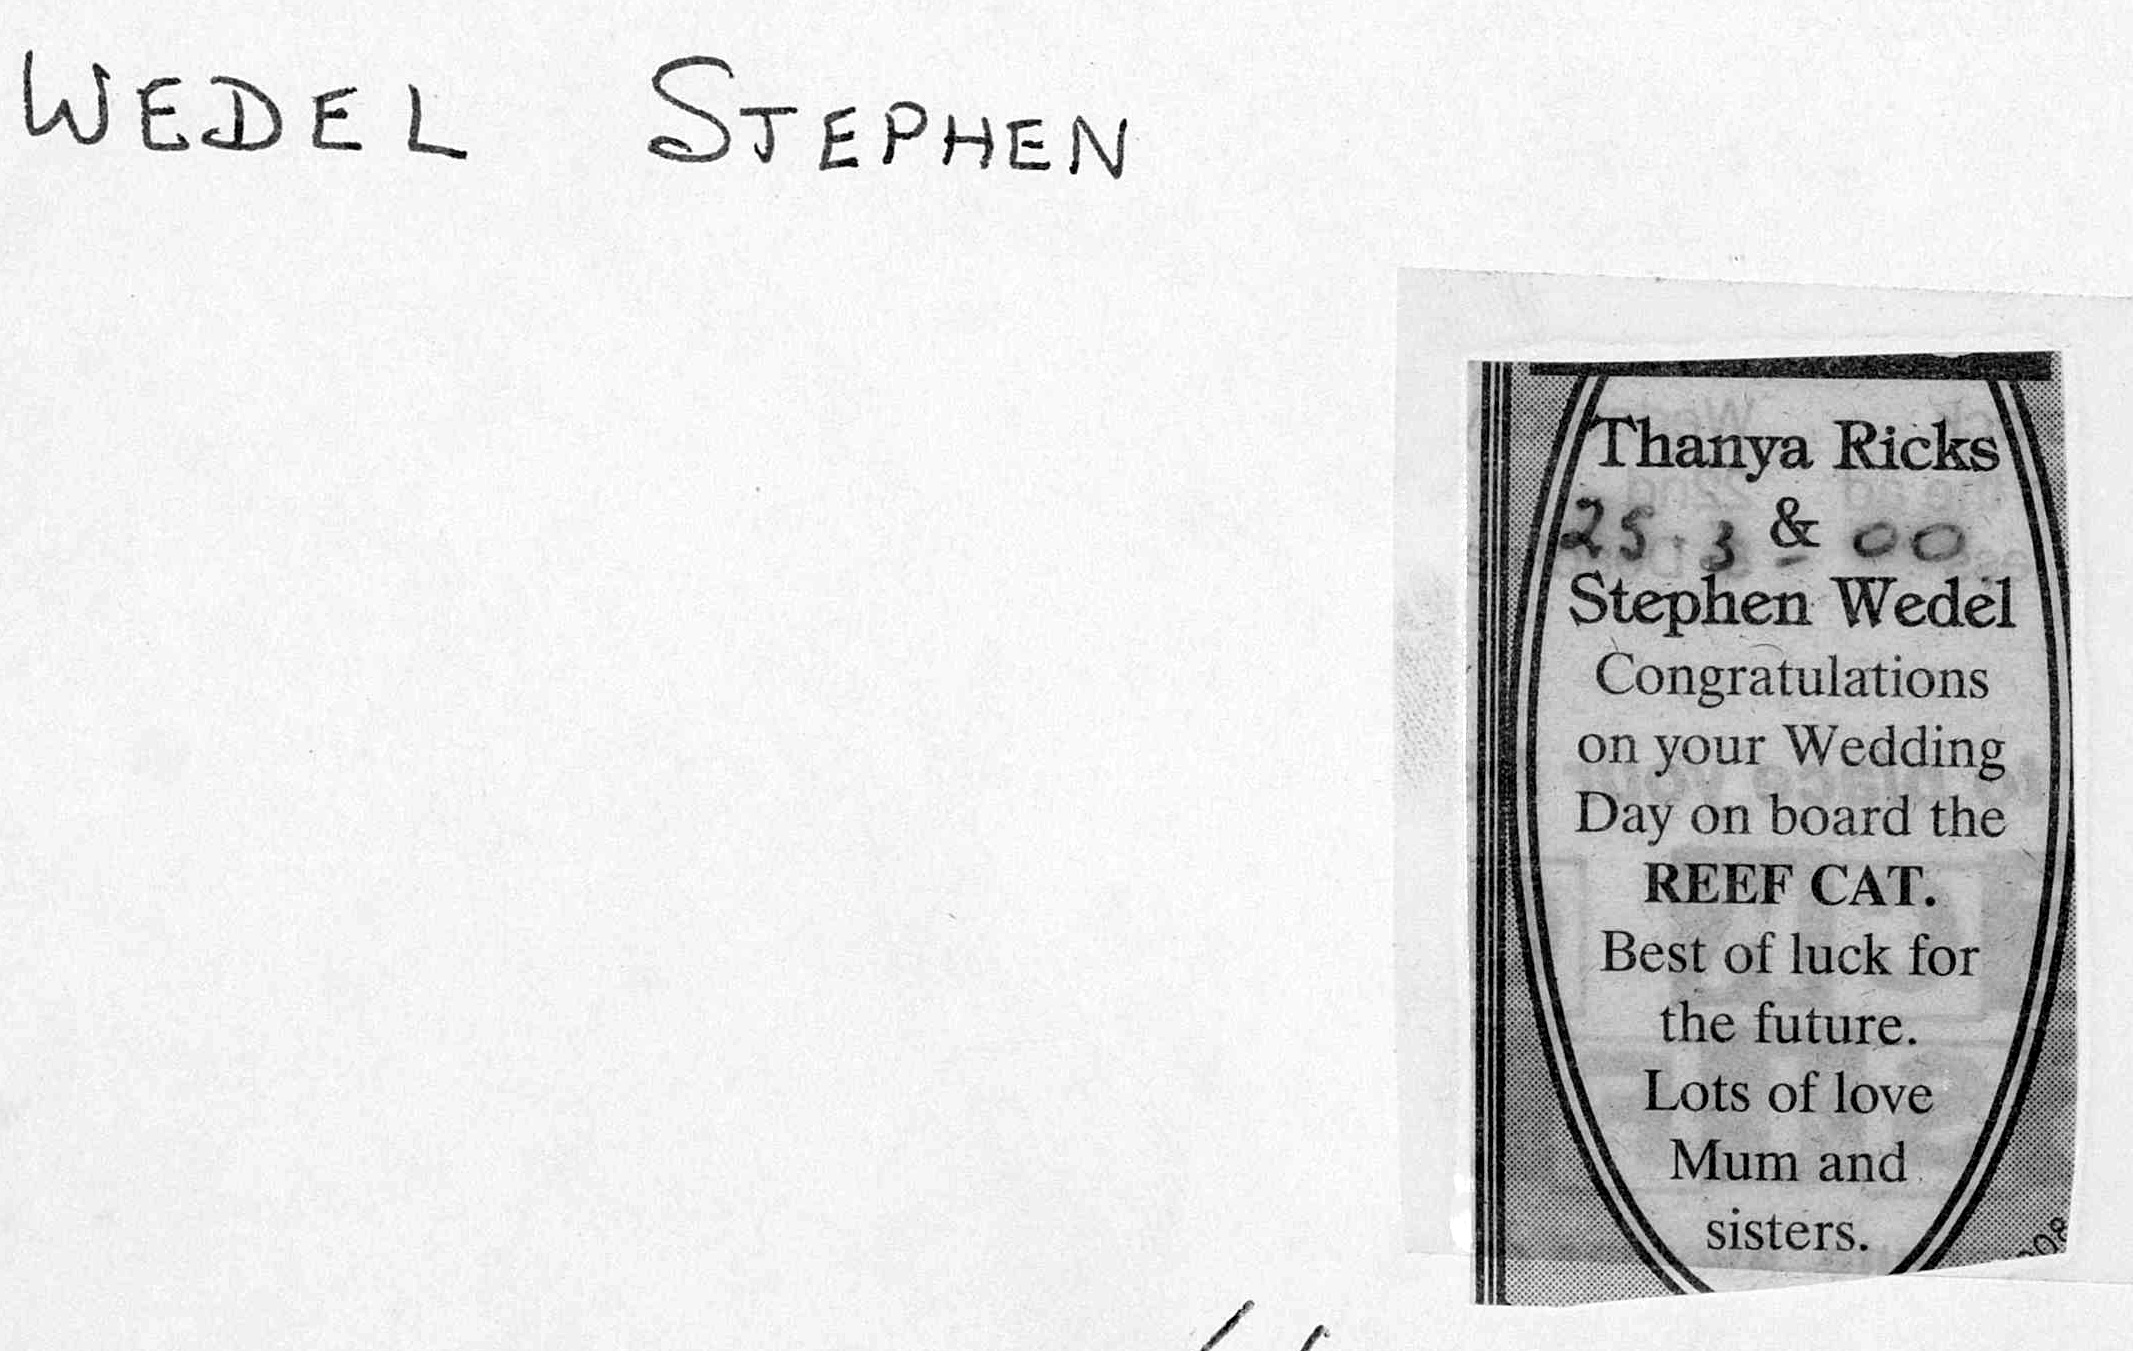 WEDEL STEPHEN
Thanya Ricks
25.3 & 00
Stephen Wedel
Congratulations
on your Wedding
Day on board the
REEF CAT.
Best of luck for
the future.
Lots of love
Mum and
sisters.